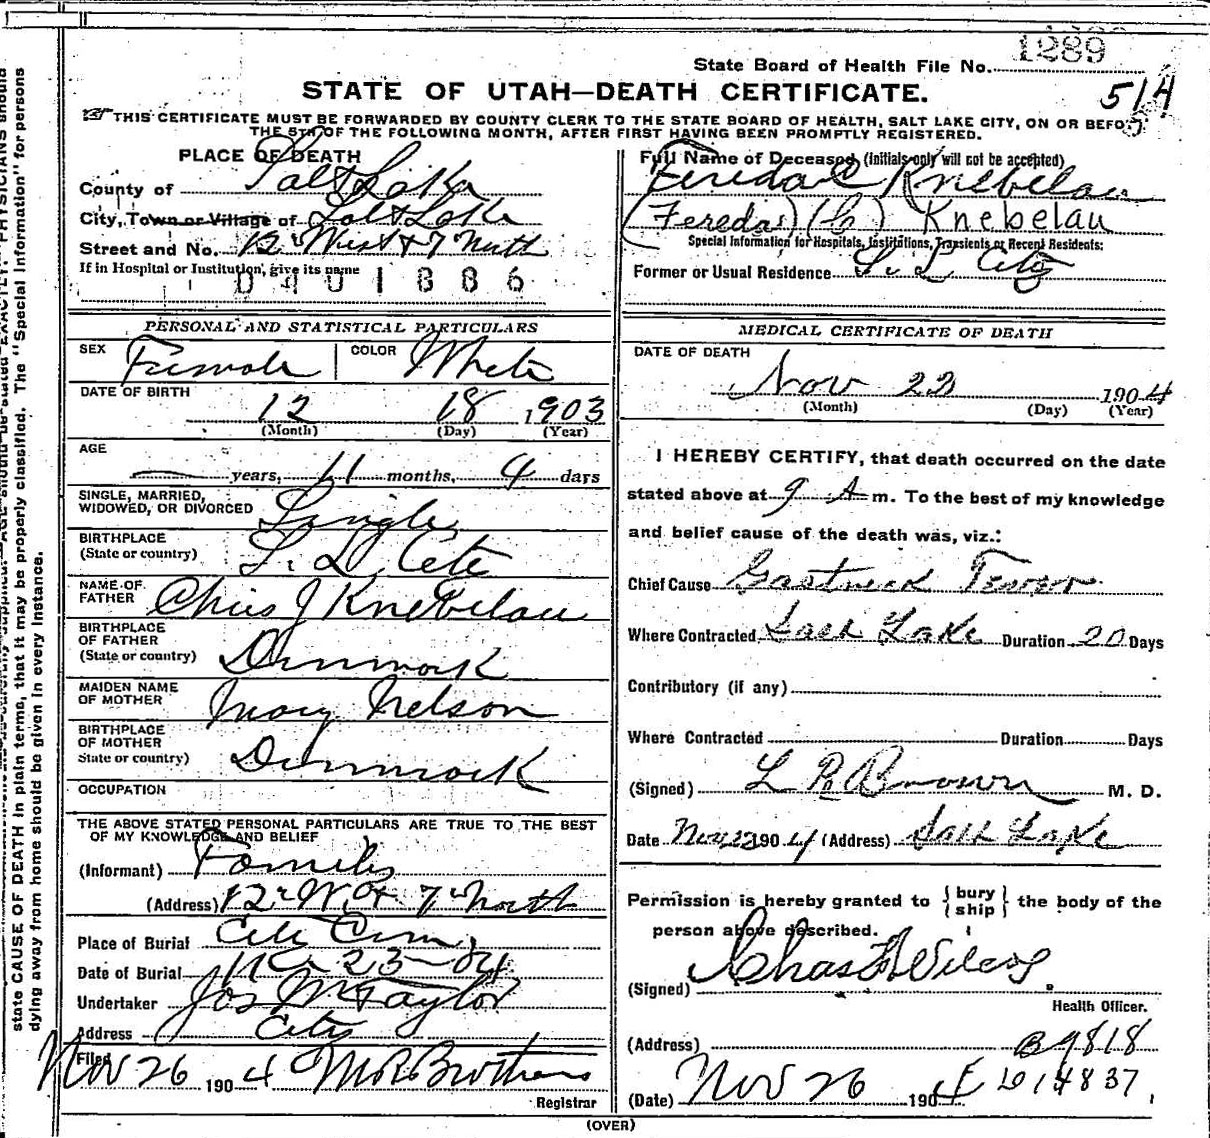 1289
State Board of Health File No.
STATE OF UTAH—DEATH CERTIFICATE.
514
THIS CERTIFICATE MUST BE FORWARDED BY COUNTY CLERK TO THE STATE BOARD OF HEALTH, SALT LAKE CITY, ON OR BEFORE
THE 5TH OF THE FOLLOWING MONTH, AFTER FIRST HAVING BEEN PROMPTLY REGISTERED.
PLACE OF DEATH
County of Salt Lake
City, Town or Village of Salt Lake
Street and No. 12 West & 7 North
If in Hospital or Institution, give its name
0401886
Full Name of Deceased (Initials only will not be accepted)
Fereda C Knebelau
(Fereda) (C) Knebelau
Special Information for Hospitals, Institutions, Transients or Recent Residents:
Former or Usual Residence S. L City
PERSONAL AND STATISTICAL PARTICULARS
SEX Female COLOR White
DATE OF BIRTH
12 18 1903
(Month) (Day) (Year)
AGE
— years, 11 months, 4 days
SINGLE, MARRIED,
WIDOWED, OR DIVORCED Single
BIRTHPLACE
(State or country) S. L. Cete
NAME OF
FATHER Chris J Knebelau
BIRTHPLACE
OF FATHER
(State or country) Dinmark
MAIDEN NAME
OF MOTHER Mary Nelson
BIRTHPLACE
OF MOTHER
State or country) Dinmark
OCCUPATION
THE ABOVE STATED PERSONAL PARTICULARS ARE TRUE TO THE BEST
OF MY KNOWLEDGE AND BELIEF
(Informant) Family
(Address) 12 W. & 7 North
Place of Burial Cete Cem
Date of Burial 23-04
Undertaker Jos Wm Taylor
Address City
Filed Nov 26 1904 M R Brothers
Registrar
MEDICAL CERTIFICATE OF DEATH
DATE OF DEATH
Nov 22 1904
(Month) (Day) (Year)
I HEREBY CERTIFY, that death occurred on the date
stated above at 9 A m. To the best of my knowledge
and belief cause of the death was, viz.:
Chief Cause Gastrick Fever
Where Contracted Salt Lake Duration 20 Days
Contributory (if any)
Where Contracted Duration Days
(Signed) L R Brown M. D.
Date Nov 22 1904 (Address) Salt Lake
Permission is hereby granted to { bury ship } the body of the
person above described.
(Signed) Chas Wilcox
Health Officer.
(Address) B 9818
L 14837
(Date) Nov 26 1904
(OVER)
state CAUSE OF DEATH in plain terms, that it may be properly classified. The "Special Information" for persons
dying away from home should be given in every instance.